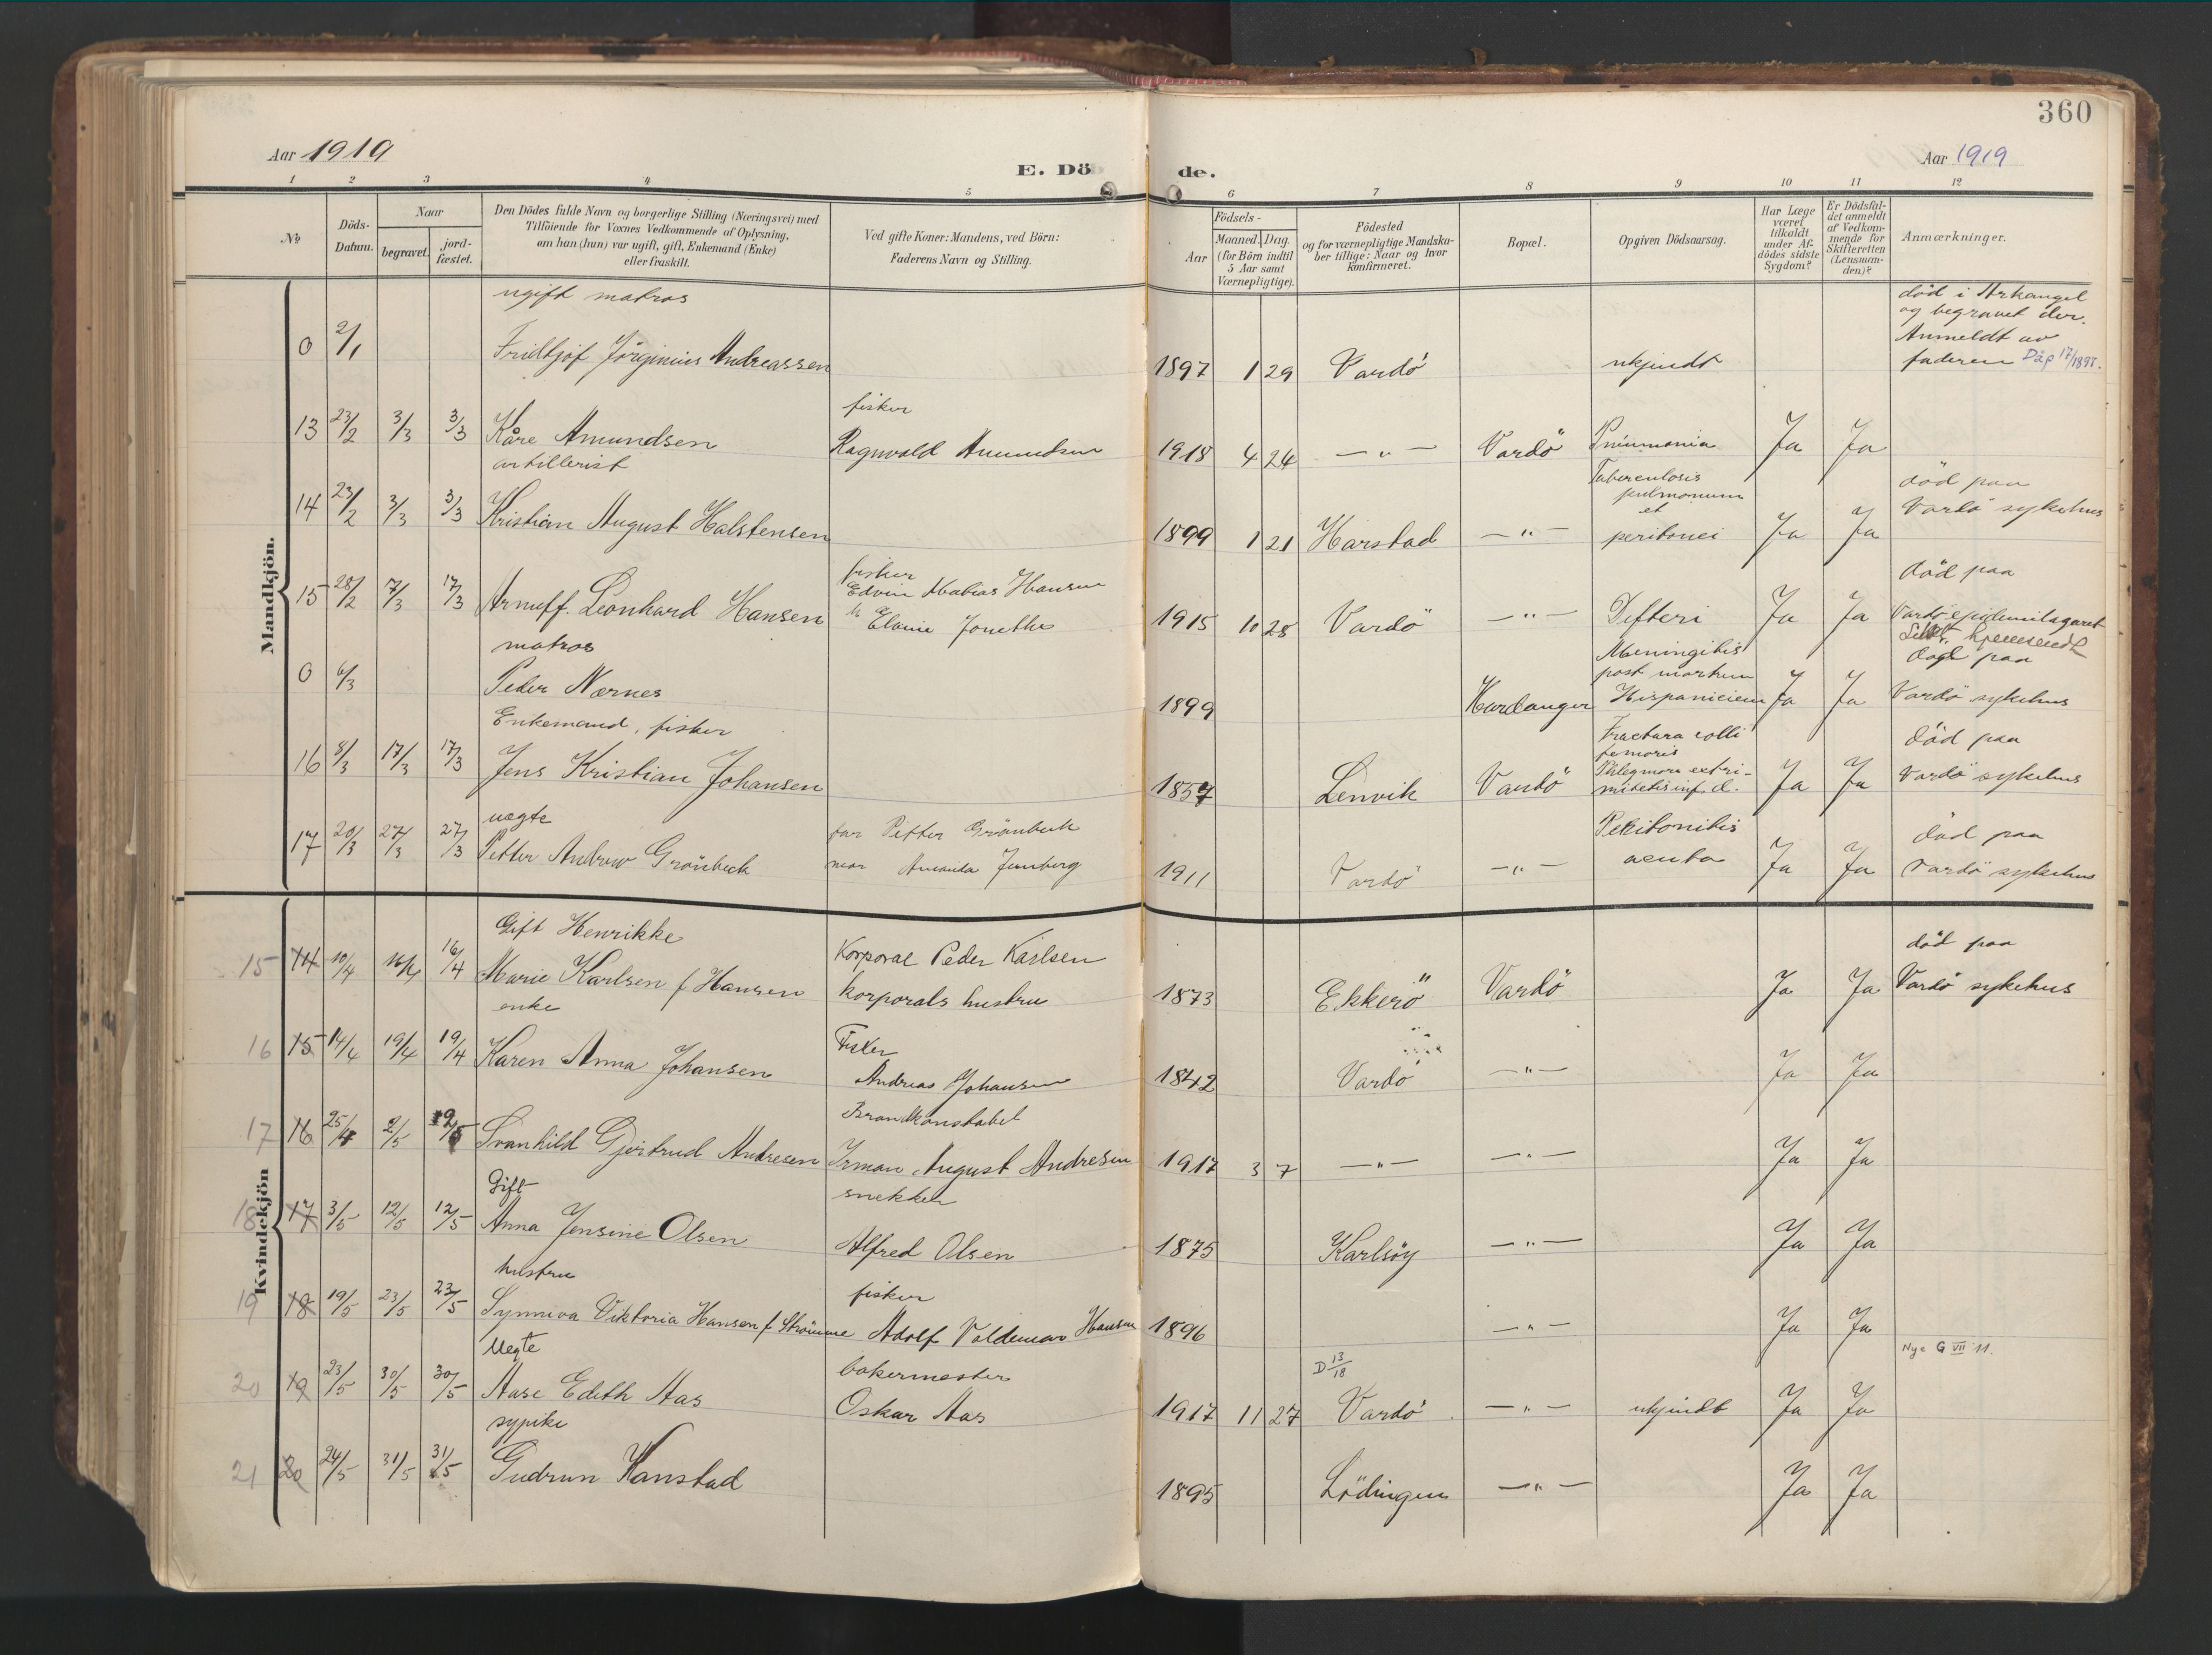 360
Aar 1919
E. Dö de.
Aar 1919
1 2 3 4 5 6 7 8 9 10 11 12
No
Döds-Datum.
Naar
begravet.
jord-fæstet.
Den Dödes fulde Navn og borgerlige Stilling (Næringsvei) med
Tilföiende for Voxnes Vedkommende af Oplysning,
om han (hun) var ugift, gift, Enkemand (Enke)
eller fraskilt.
Ved gifte Koner: Mandens, ved Börn:
Faderens Navn og Stilling.
Födsels-
Aar
Maaned. Dag.
(for Börn indtil
5 Aar samt
Værnepligtige).
Födested
og for værnepligtige Mandska-
ber tillige: Naar og hvor
konfirmeret.
Bopæl.
Opgiven Dödsaarsag.
Har Læge
været
tilkaldt
under Af-
dödes sidste
Sygdom?
Er Dödsfal-
det anmeldt
af Vedkom-
mende for
Skifteretten
(Lensman-
den)?
Anmærkninger.
Mandkjön.
ugift matros
0 2/1 Fridtjof Jörginius Andreassen 1897 1 29 Vardö ukjendt
död i Arkangel
og begravet der.
Anmeldt av
faderen Dåp 17/1897.
fisker
13 23/2 3/3 3/3 Kåre Amundsen Ragnvald Amundsen 1918 4 24 — " — Vardö Pneumonia Ja Ja
artillerist
14 23/2 3/3 3/3 Kristian August Halstensen 1899 1 21 Harstad — " —
Tuberculosis
pulmonum
et
peritonei Ja Ja
död paa
Vardö sykehus
fisker
15 28/2 7/3 17/3 Arnulf. Leonhard Hansen Edvin Mabias Hansen
h Elanie Jonethe 1915 10 28 Vardö — " — Difteri Ja Ja
död paa
Vardö epidemilagaret
matros
0 6/3 Peder Nærnes 1899 Hardanger
Meningitis
post
Ja Ja
paa
Vardö sykehus
Enkemand, fisker
16 8/3 17/3 17/3 Jens Kristian Johansen 1857 Lenvik Vardö
Fractura colli
femoris
Phlegmone extri-
inf. d. Ja Ja
död paa
Vardö sykehus
uegte
17 20/3 27/3 27/3 Petter Andrew Grönbeck
far Petter Grönbeck
mor Amanda Jernberg 1911 Vardö — " —
Peritonitis
acuta Ja Ja
död paa
Vardö sykehus
Kvindekjön
Gift Henrikke
15 14 10/4 16/4 16/4 Marie Karlsen f Hansen
Korporal Peder Karlsen
korporals hustru 1873 Ekkerö Vardö Ja Ja
död paa
Vardö sykehus
enke
16 15 14/4 19/4 19/4 Karen Anna Johansen
Fisker
Andreas Johansen 1842 Vardö — " — Ja Ja
17 16 25/4 2/5 2/5 Svanhild Gjertrud Andresen
Brandkonstabel
Irman August Andresen 1917 3 7 — " — — " — Ja Ja
Gift
18 17 3/5 12/5 12/5 Anna Jensine Olsen
snekker
Alfred Olsen 1875 Karlsöy — " — Ja Ja
hustru
19 18 19/5 23/5 23/5 Synniva Viktoria Hansen f Strömme
fisker
Adolf Valdemar Hansen 1896 — " — Ja Ja
Uegte
20 19 23/5 30/5 30/5 Aase Edith Aas
bakermester
Oskar Aas 1917 11 27 D 13/18
Vardö — " — ukjendt Ja Ja
Nye G VII 11.
sypike
21 20 24/5 31/5 31/5 Gudrun Kanstad 1895 Lödingen — " — Ja Ja